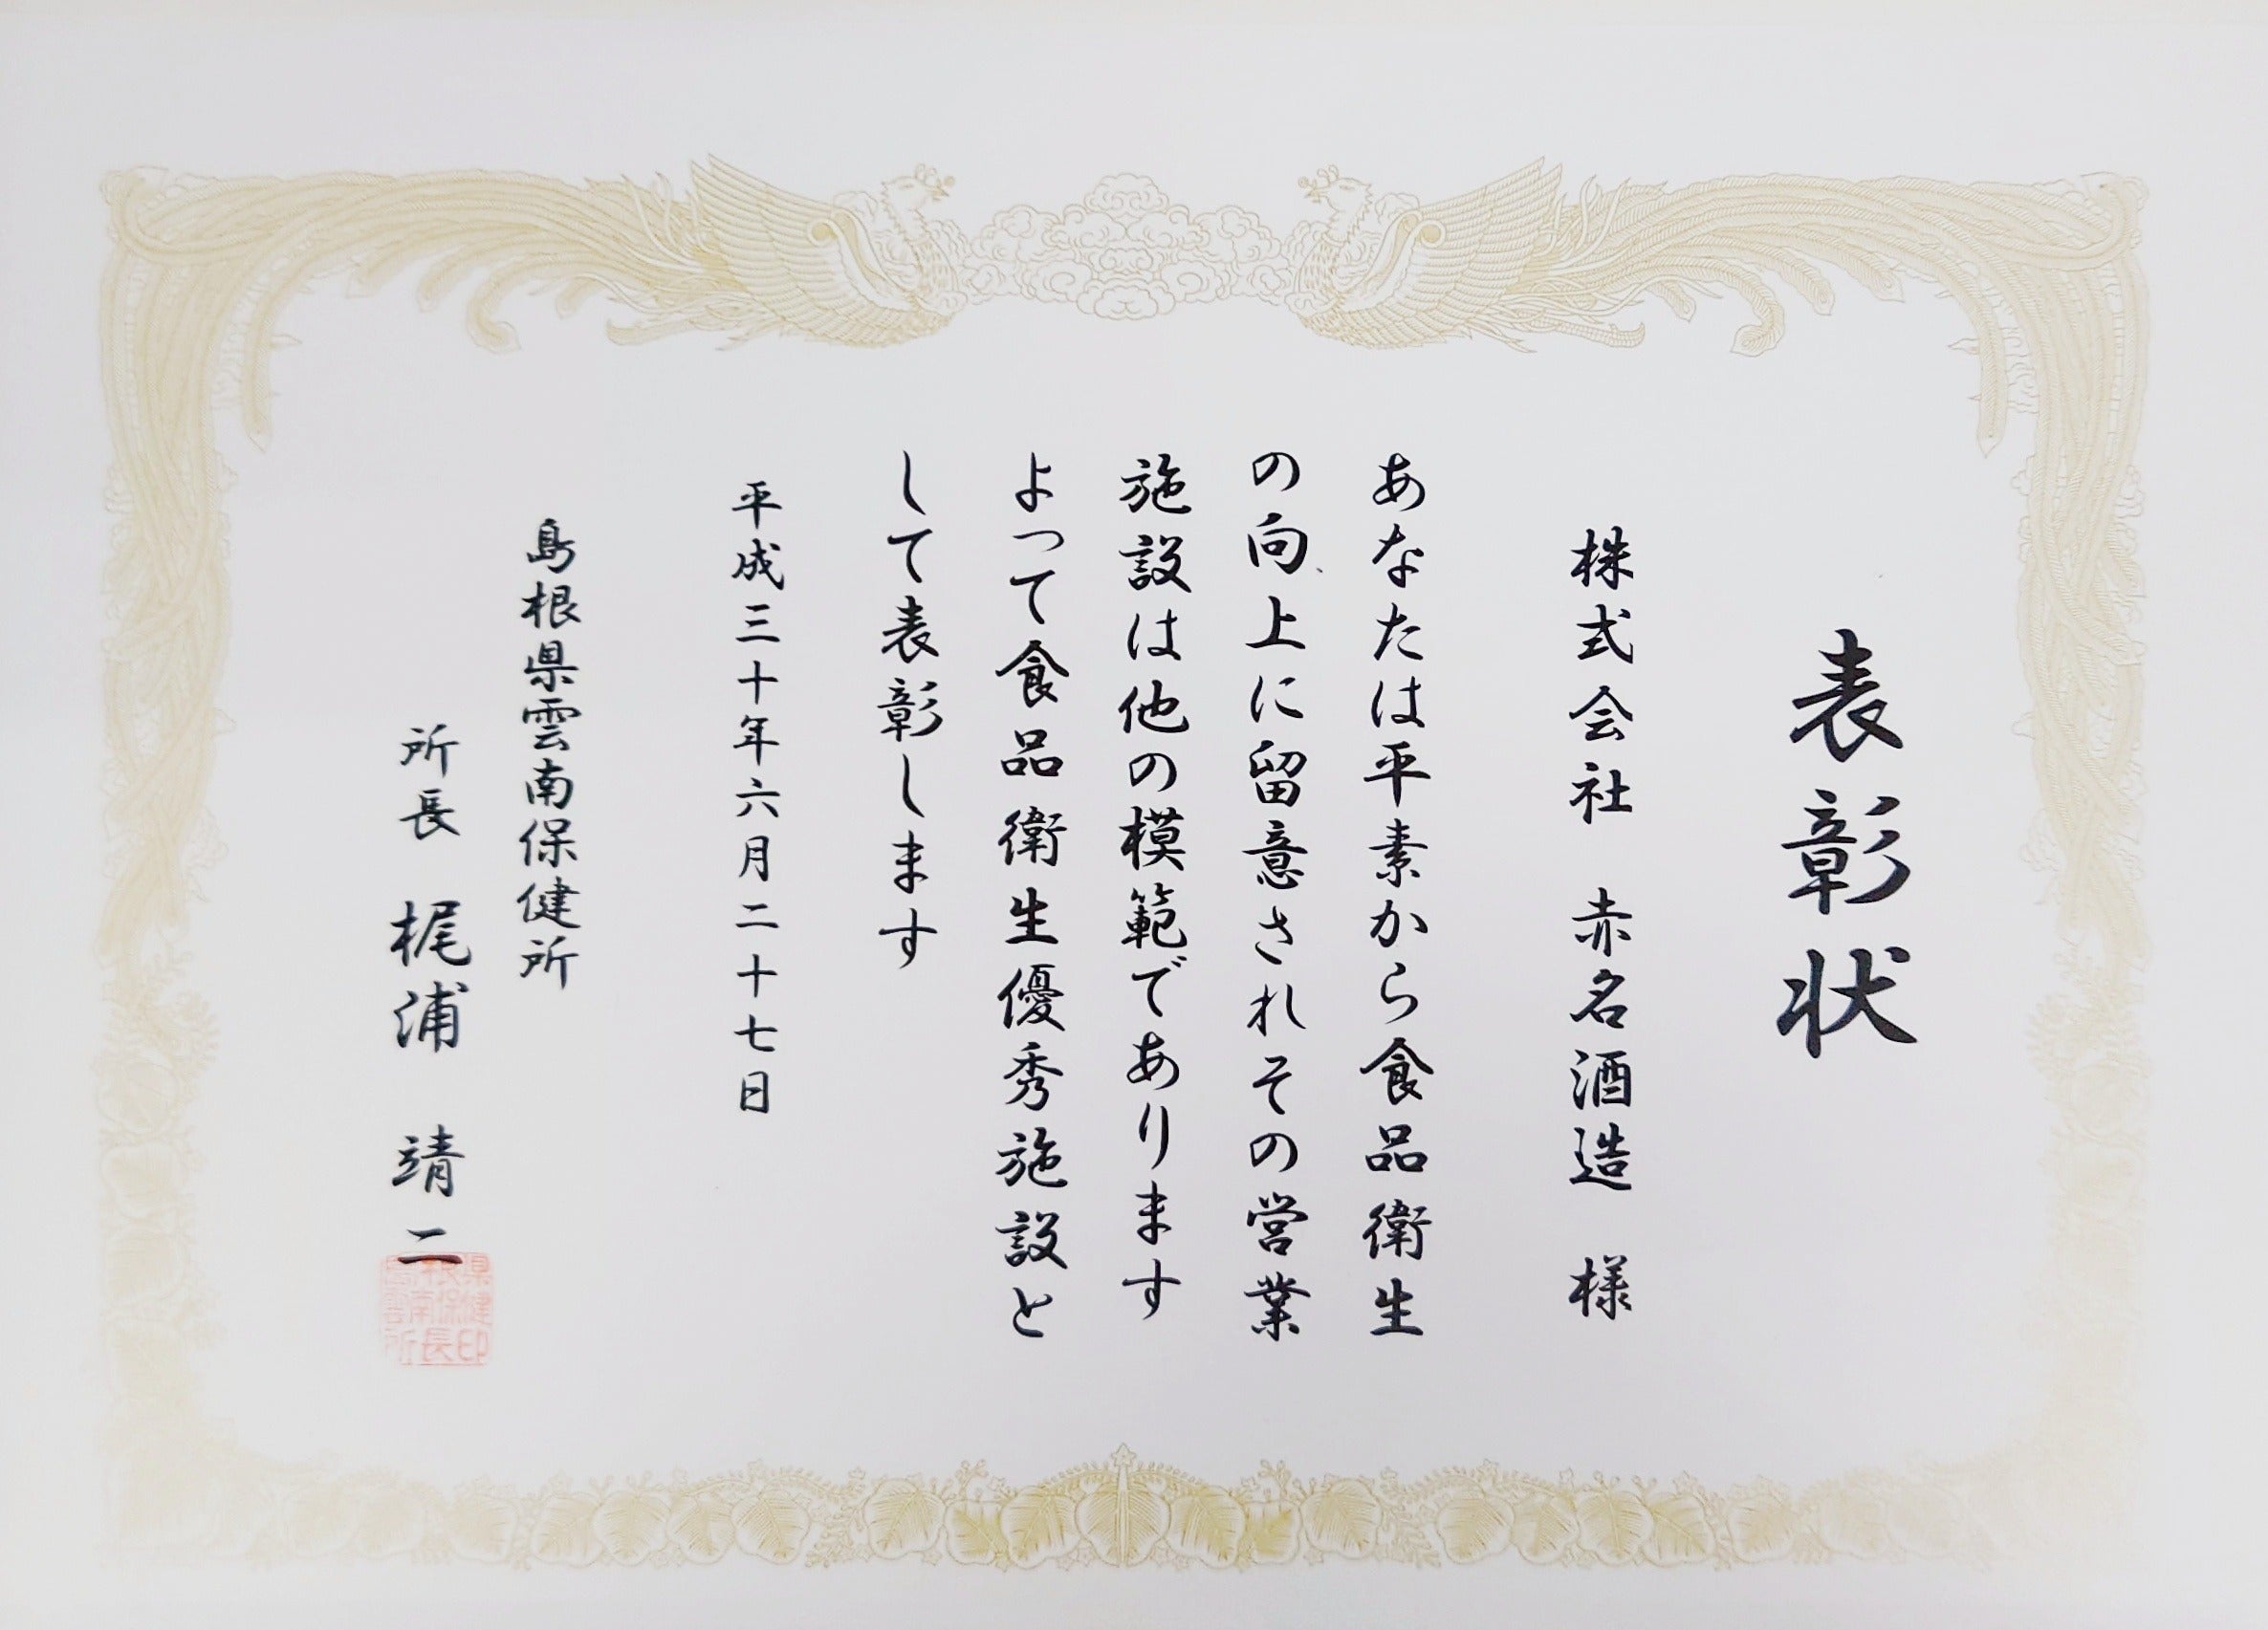 表彰状
株式会社 赤名酒造 様
あなたは平素から食品衛生
の向上に留意されその営業
施設は他の模範であります
よって食品衛生優秀施設と
して表彰します
平成三十年六月二十七日
島根県雲南保健所
所長 梶浦 靖二